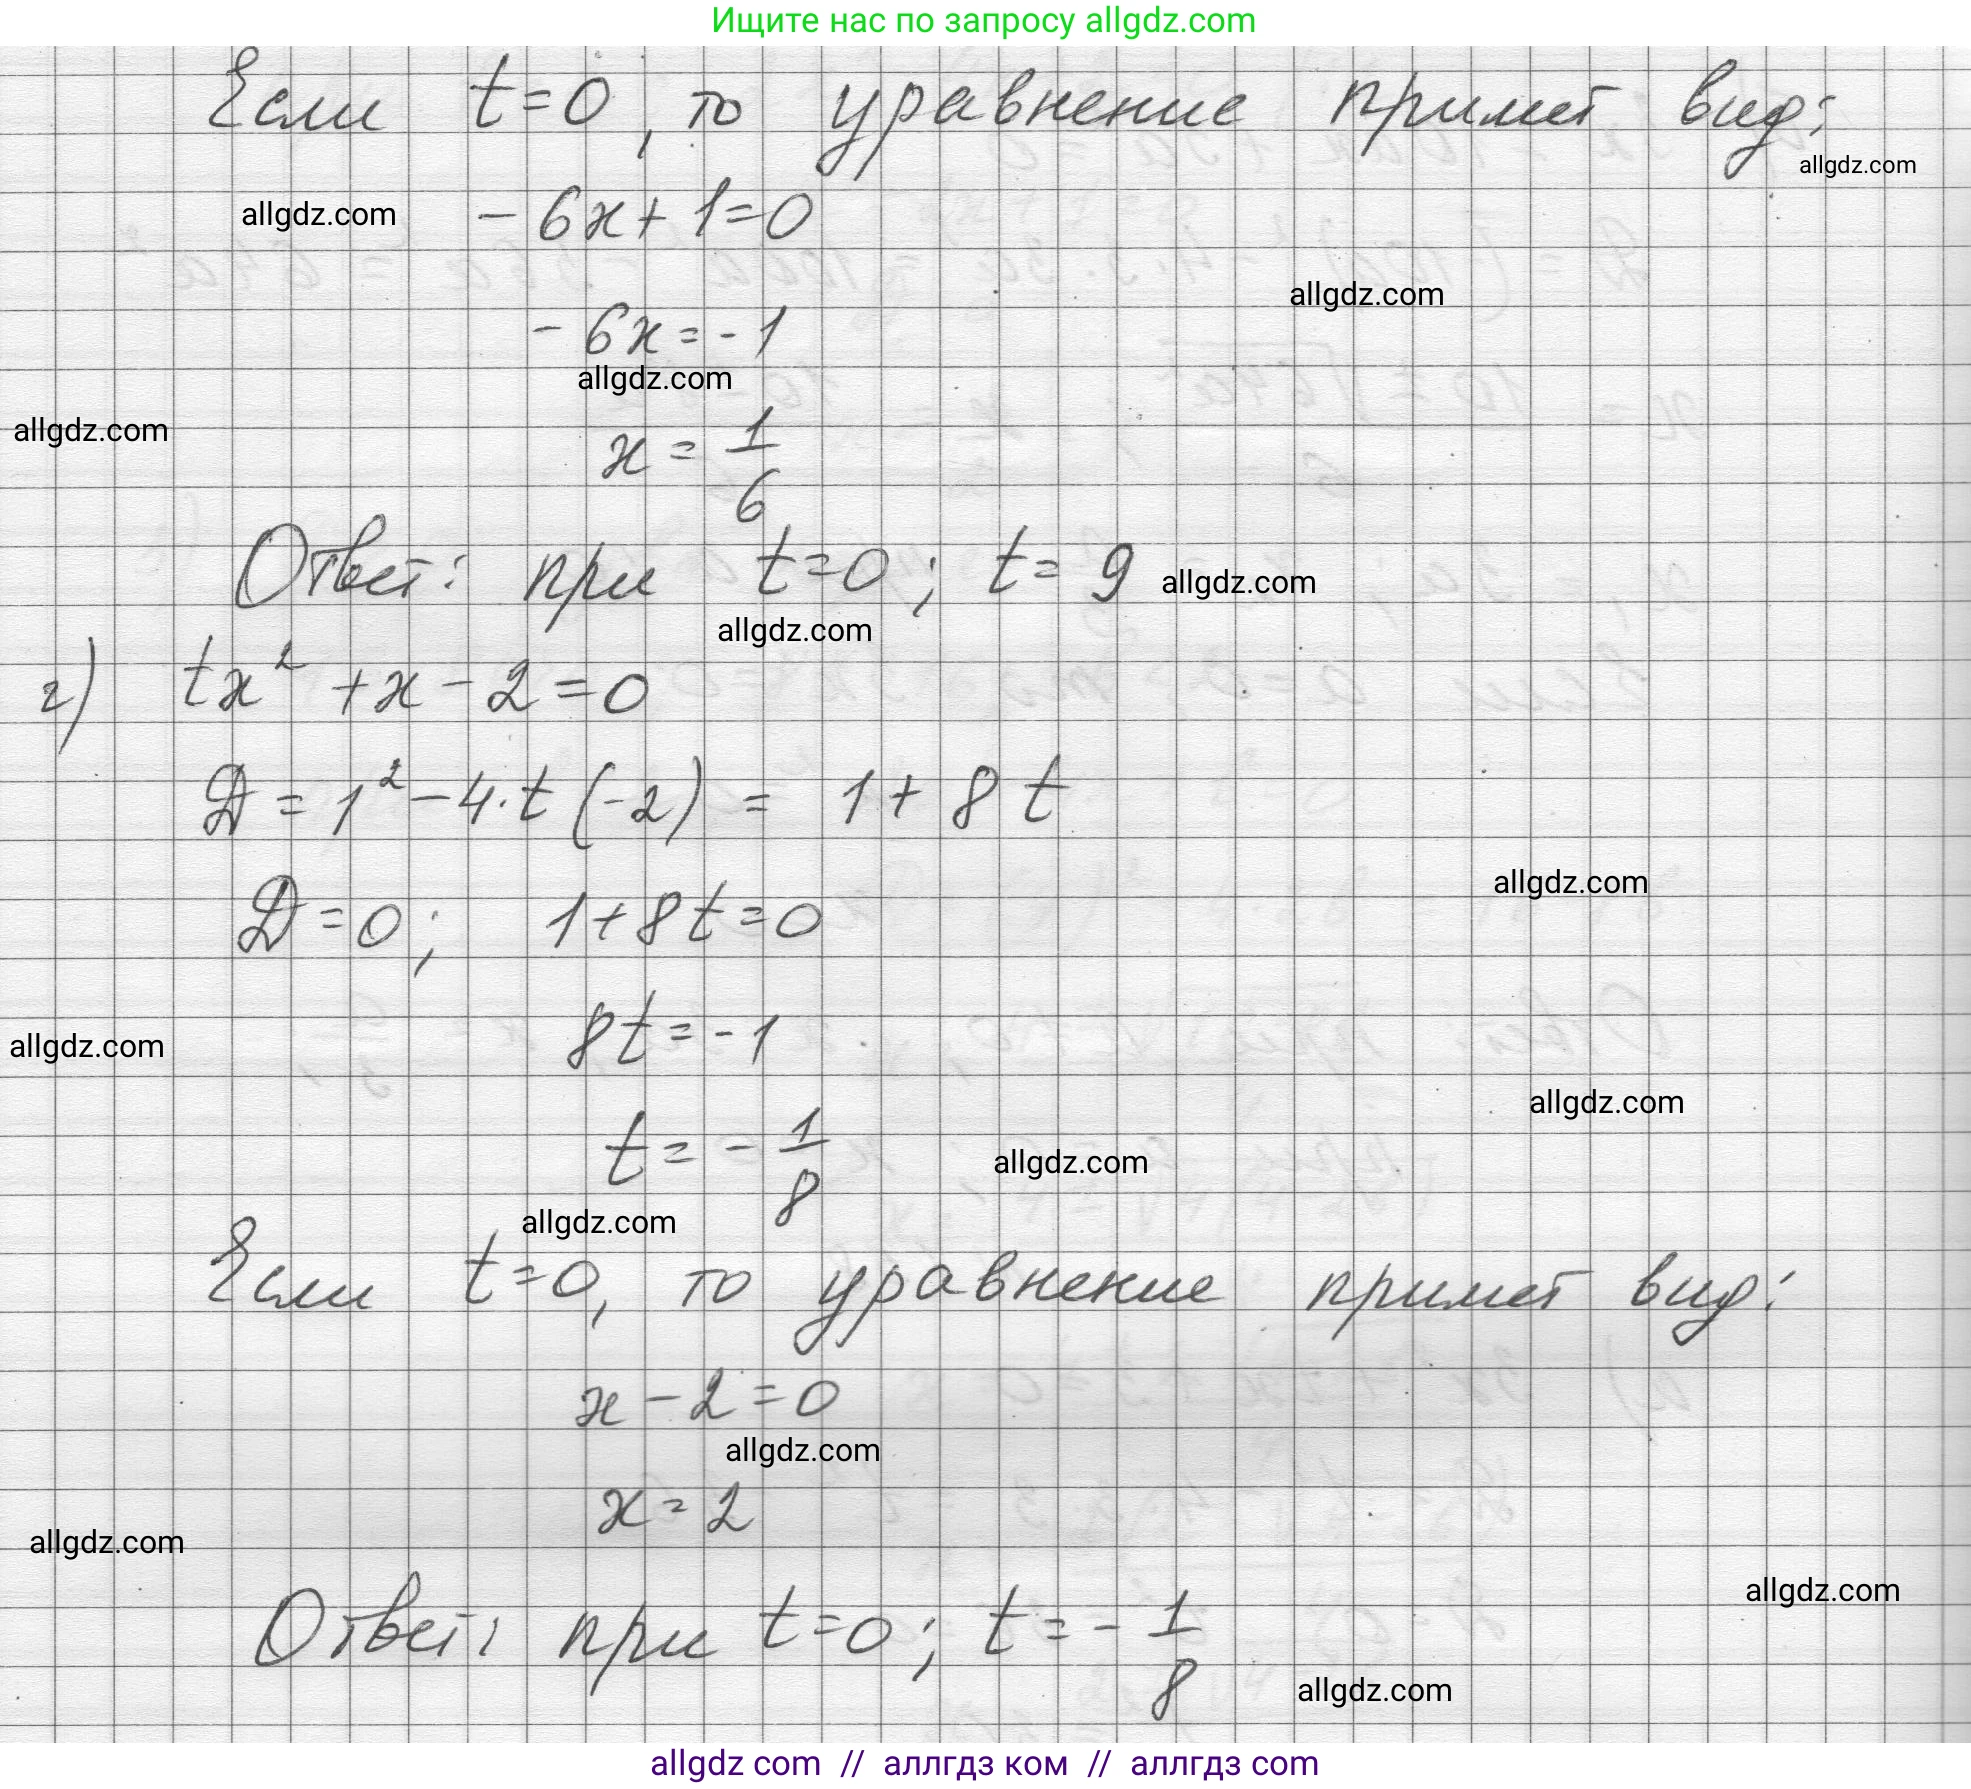 Ищите нас по запросу allgdz.com
Если t=0, то уравнение примет вид:
allgdz.com
allgdz.com
-6x+1=0
allgdz.com
-6x=-1
allgdz.com
allgdz.com
x=1/6
Ответ: при t=0; t=9
allgdz.com
allgdz.com
г) tx²+x-2=0
D=1²-4·t(-2)=1+8t
allgdz.com
D=0; 1+8t=0
8t=-1
allgdz.com
allgdz.com
t=-1/8
allgdz.com
allgdz.com
Если t=0, то уравнение примет вид:
x-2=0
allgdz.com
x=2
allgdz.com
allgdz.com
Ответ: при t=0; t=-1/8
allgdz.com
allgdz com // аллгдз ком // аллгдз com